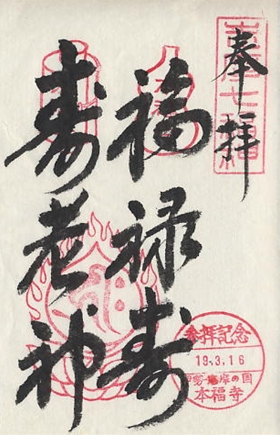 奉拝
福禄寿
寿老神
参拝記念
19.3.16
本福寺